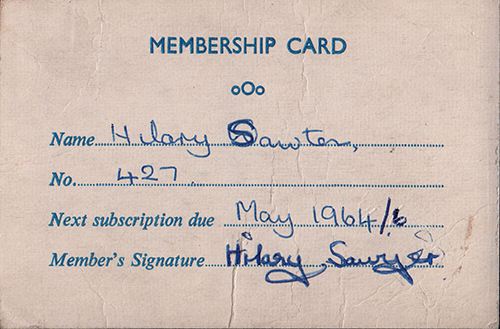 MEMBERSHIP CARD
oOo
Name Hilary Sawter,
No. 427
Next subscription due May 1964/6
Member's Signature Hilary Sawyer